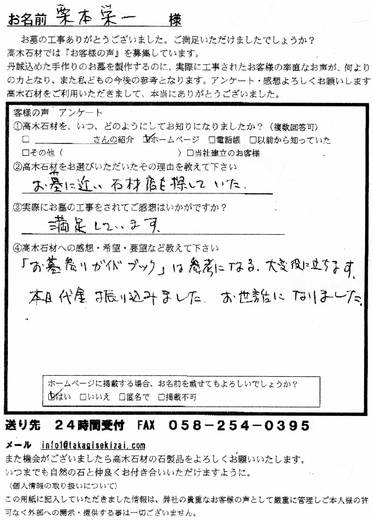 お名前 栗本栄一 様
お墓の工事ありがとうございました。ご満足いただけましたでしょうか?
高木石材では『お客様の声』を募集しています。
丹誠込めた手作りのお墓を製作するのに、実際に工事されたお客様の率直なお声が、何より
の力となり、また私どもの今後の参考となります。アンケート・感想よろしくお願いします
高木石材をご利用いただきまして、本当にありがとうございました。
客様の声 アンケート
①高木石材を、いつ、どのようにしてお知りになりましたか?(複数回答可)
□ さんの紹介 ☑ホームページ □電話帳 □以前から知っていた
□その他( )□当社建立のお客様
②高木石材をお選びいただいたその理由を教えて下さい
お墓に近い石材店を探していた。
③実際にお墓の工事をされてご感想はいかがですか?
満足しています。
④高木石材への感想・希望・要望など教えて下さい
「お墓参りガイドブック」は参考になる、大変役に立ちます。
本日代金振り込みました。お世話になりました。
ホームページに掲載する場合、お名前を載せてもよろしいでしょうか?
☑はい □いいえ □匿名で □掲載不可
送り先 24時間受付 FAX 058-254-0395
メール info@takagisekizai.com
また機会がございましたら高木石材の石製品をよろしくお願いいたします。
いつまでも自然の石と仲良くお付き合いいただけますように。
(個人情報の取り扱いについて)
この用紙に記入していただきました情報は、弊社の貴重なお客様の声として厳重に管理しご本人様の許
可なく外部への開示・提供する事は一切ございません。